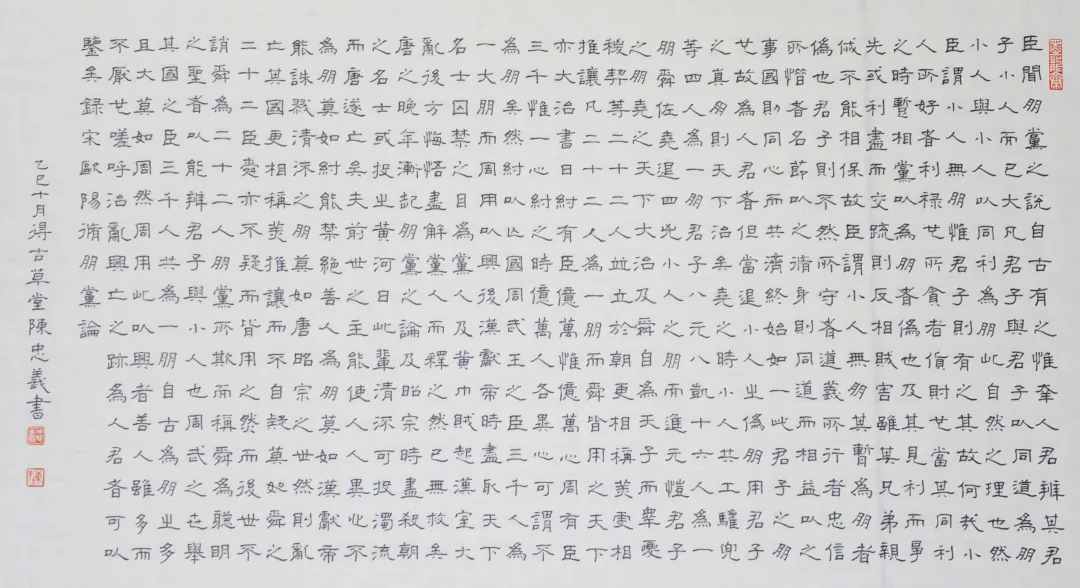 臣聞朋黨之說自古有之惟幸人君辨其君
子小人而已大凡君子與君子以同道為朋
小人與小人以同利為朋此自然之理也然
臣謂小人無朋惟君子則有之其故何哉小
人所好者利祿也所貪者貨財也當其同利
之時暫相黨以為朋者偽也及其見利而爭
先或利盡而交疏則反相賊害雖其兄弟親
戚不能相保故臣謂小人無朋其暫為朋者
偽也君子則不然所守者道義所行者忠信
所惜者名節以之脩身則同道而相益以之
事國則同心而共濟終始如一此君子之朋
也故為人君者但當退小人之偽朋用君子
之真朋則天下治矣堯之時小人共工驩兜
等四人為一朋君子八元八凱十六人為一
朋舜佐堯退四凶小人之朋而進元愷君子
之朋堯之天下大治及舜自為天子而皋夔
稷契等二十二人並立於朝更相稱美更相
推讓凡二十二人為一朋而舜皆用之天下
亦大治書曰紂有臣億萬惟億萬心周有臣
三千惟一心紂之時億萬人各異心可謂不
為朋矣然紂以亡國周武王之臣三千人為
一大朋而周用以興後漢獻帝時盡取天下
名士囚禁之目為黨人及黃巾賊起漢室大
亂後方悔悟盡解黨人而釋之然已無救矣
唐之晚年漸起朋黨之論及昭宗時盡殺朝
之名士或投之黃河曰此輩清流可投濁流
而唐遂亡矣夫前世之主能使人人異心不
為朋莫如紂能禁絕善人為朋莫如漢獻帝
能誅戮清流之朋莫如唐昭宗之世然則亂
亡其國更相稱美推讓而不自疑莫如舜之
二十二臣舜亦不疑而皆用之然而後世不
誚舜為二十二人朋黨所欺而稱舜為聰明
之聖者以能辨君子與小人也周武之世舉
其國之臣三千人共為一朋自古為朋之多
且大莫如周然周用此以興者善人雖多而
不厭也嗟呼治亂興亡之跡為人君者可以
鑒矣錄宋歐陽脩朋黨論
乙巳十月得古草堂陳忠義書